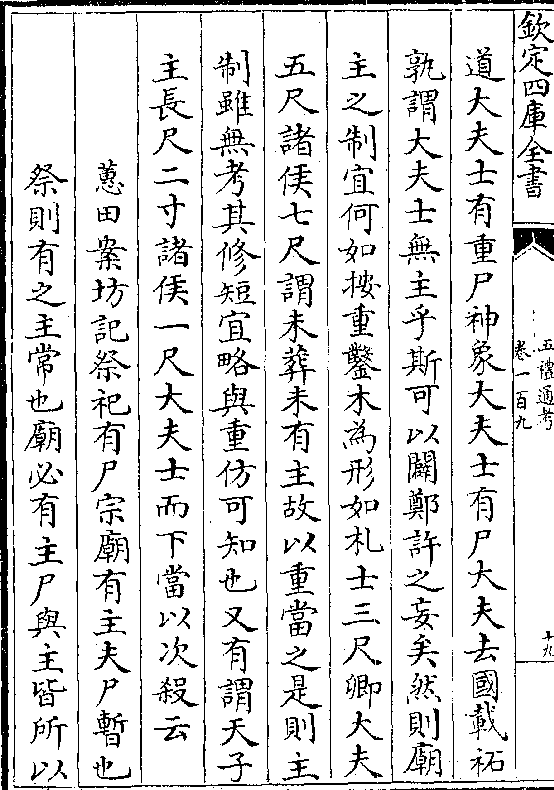 欽定四庫全書
五禮通考
卷一百九
十九
道大夫士有重尸神象大夫士有尸大夫去國載祏
孰謂大夫士無主乎斯可以闢鄭許之妄矣然則廟
主之制宜何如按重鑿木為形如札士三尺卿大夫
五尺諸侯七尺謂未葬未有主故以重當之是則主
制雖無考其修短宜略與重仿可知也又有謂天子
主長尺二寸諸侯一尺大夫士而下當以次殺云
蕙田案坊記祭祀有尸宗廟有主夫尸暫也
祭則有之主常也廟必有主尸與主皆所以